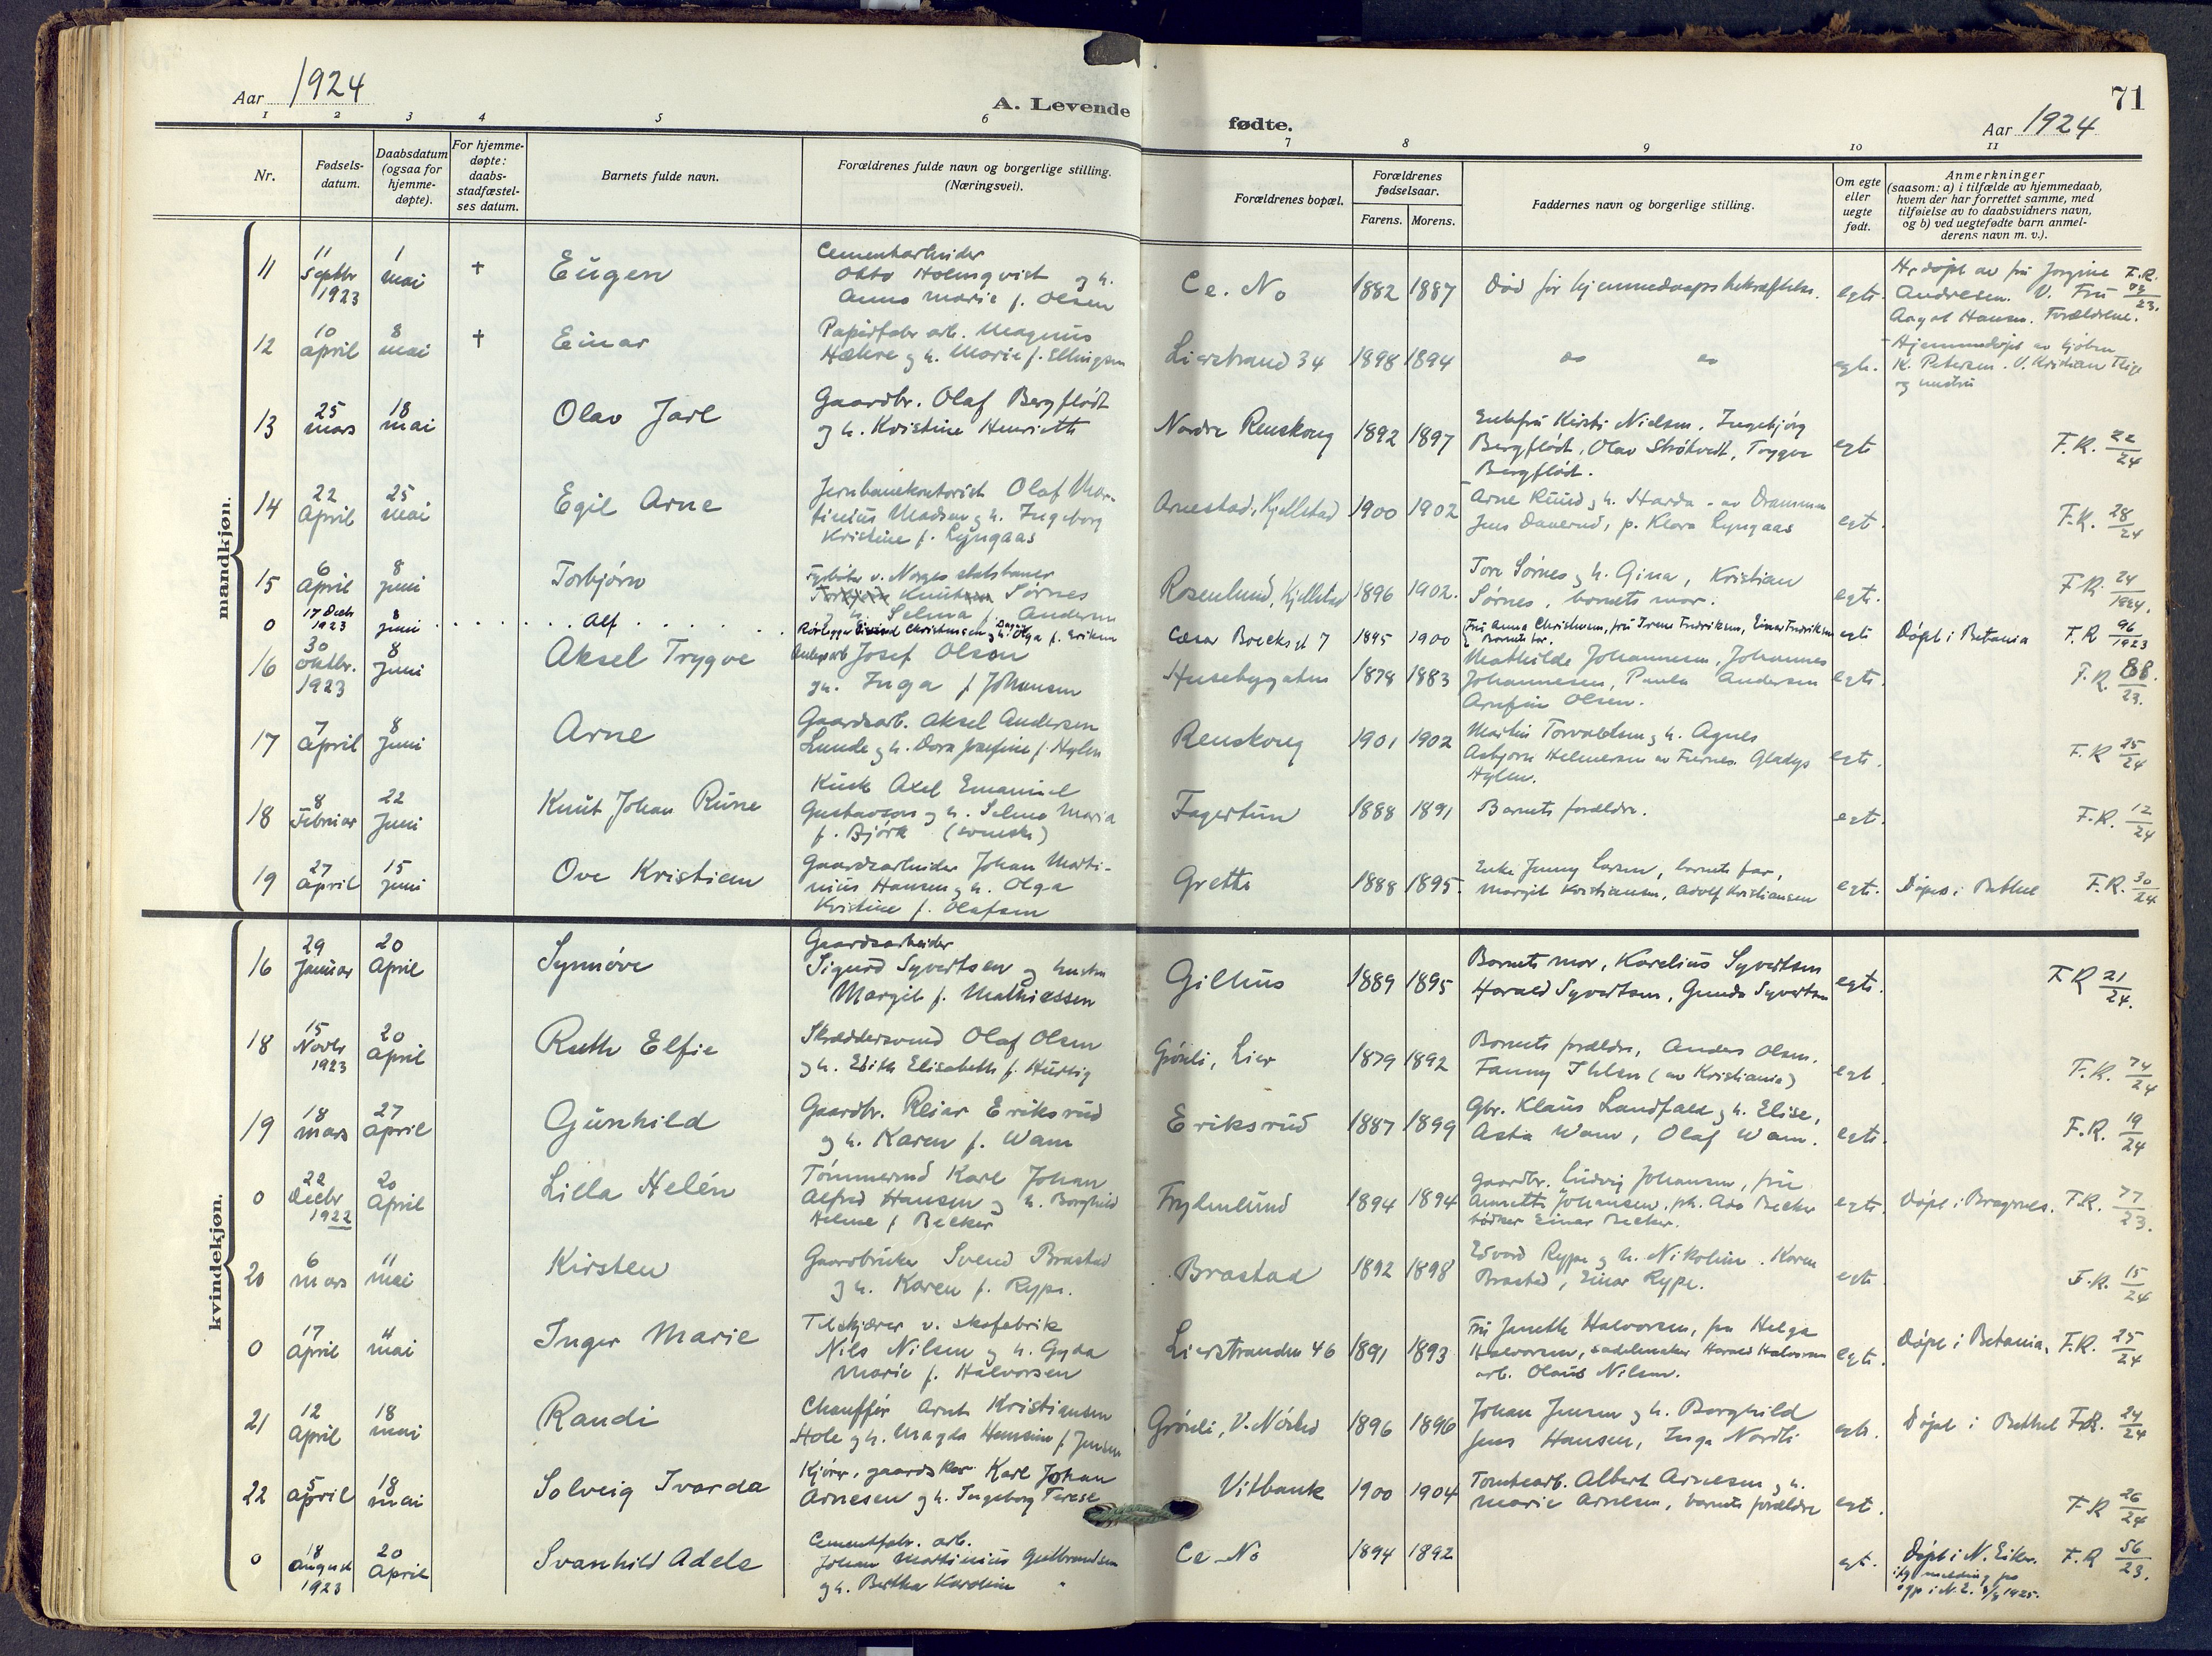 Aar 1924
A. Levende fødte.
Aar 1924
71
1 2 3 4 5 6 7 8 9 10 11
Nr.
Fødsels-
datum.
Daabsdatum
(ogsaa for
hjemme-
døpte).
For hjemme-
døpte:
daabs-
stadfæstel-
ses datum.
Barnets fulde navn.
Forældrenes fulde navn og borgerlige stilling.
(Næringsvei).
Forældrenes bopæl.
Forældrenes
fødselsaar.
Farens. Morens.
Faddernes navn og borgerlige stilling.
Om egte
eller
uegte
født.
Anmerkninger
(saasom: a) i tilfælde av hjemmedaab,
hvem der har forrettet samme, med
tilføielse av to daabsvidners navn,
og b) ved uegtefødte barn anmel-
derens navn m. v.).
mandkjøn.
11
11 Septbr 1923
1 mai
†
Eugen
Cementarbeider
Otto Holmqvist og h.
Anna Marie f. Olsen
Ce. No
1882 1887
Død før hjemmedaaps bekræftelse.
egte.
Hj døpt av fru Jorgine
Andresen. V. Fru
Aagot Hansen. Forældrene.
F.R.
12
10 april
8 mai
†
Einar
Papirfabr arb. Magnus
Hæhre og h. Marie f. Ellingsen
Lierstrand 34
1898 1894
egte.
Hjemmedøpt av
K. Petersen. V. Kristian
og hustru
13
25 mars
18 mai
Olav Jarl
Gaardbr. Olaf Bergflødt
og h. Kristine Henriette
Nordre Renskoug
1892 1897
Enkefru Kirsti Nielsen, Ingebjørg
Bergflødt, Olav Strøtvedt, Trygve
Bergflødt.
egte
F.R. 22/24
14
22 April
25 mai
Egil Arne
Jernbanekontorist Olaf Mar-
tinius Madsen og h. Ingeborg
Kristine f. Lyngaas
Arnestad, Kjellstad
1900 1902
Arne Ruud og h. Harda - av Drammen
Jens Dauerud, p. Klara Lyngaas
egt.
F.R. 28/24
15
6 April
8 juni
Torbjørn
Fyrbøter v. Norges statsbaner
Knut Sørnes
og h. Selma f. Andersen
Rosenlund, Kjellstad
1896 1902.
Tore Sørnes og h. Gina, Kristian
Sørnes, barnets mor.
egte.
F.R. 24/1924.
0
17 Decbr 1923
8 juni
Alf
Rørlegger Eivind Christensen og h. Dagny Olga f. Eriksen
Cæsar Boecks gt 7
1895 1900
Fru Anna Christensen, fru Irene Fredriksen, Einar Fredriksen
Barnets far.
egte
Døpt i Betania
F.R 96/1923
16
30 oktbr. 1923
8 juni
Aksel Trygve
Anlegsarb Josef Olsen
og h. Inga f Johansen
Husebygaten
1878 1883
Mathilde Johannesen, Johannes
Johannesen, Paula Andersen
Arnfinn Olsen.
egte.
F.R. 88/23.
17
7 April
8 Juni
Arne
Gaardsarb. Aksel Andersen
Lunde og h. Dora Josefine f. Hylen
Renskoug
1901 1902
Martin Torvaldsen og h. Agnes
Asbjørn Helmersen av Furnes. Gladys
Hylen.
egte.
F.R 25/24
18
8 Februar
22 Juni
Knut Johan Rune
Kusk Axel Emanuel
Gustavson og h. Selma Maria
f. Björk (svenske)
Fagertun
1888 1891
Barnets forældre.
egte.
F.R. 12/24
19
27 April
15 juni
Ove Kristian
Gaardsarbeider Johan Marti-
nius Hansen og h. Olga
Kristine f. Olafsen
Grette
1888 1895.
Enke Jenny Larsen, barnets far,
Margit Kristiansen, Adolf Kristiansen
egte.
Døpt i Bethel
F.R. 30/24
kvindekjøn.
16
29 Januar
20 April
Synnøve
Gaardsarbeider
Sigurd Syvertsen og hustru
Margit f. Mathiassen
Gilhus
1889 1895
Barnets mor, Karelius Syvertsen
Harald Syvertsen, Gunda Syvertsen
egte.
F R 21/24.
18
15 Novbr 1923
20 April
Ruth Elfie
Skræddersvend Olaf Olsen
og h. Edith Elisabeth f. Hurtig
Grønli, Lier
1879 1892
Barnets forældre, Anders Olsen.
Fanny Ihlen (av Kristiania)
egt.
F.R. 74/24
19
18 mars
27 April
Gunhild
Gaardbr. Reiar Eriksrud
og h. Karen f. Wam
Eriksrud
1887 1899
Gbr. Klaus Landfald og h. Elise,
Asta Wam, Olaf Wam.
egte.
F.R. 19/24
0
22 Decbr 1922
20 April
Lilla Helén
Tømmermd Karl Johan
Alfred Hansen og h. Borghild
Helene f Becker
Frydenlund
1894 1894
Gaardbr. Ludvig Johansen, fru
Annette Johansen, pk. Asa Becker
bødker Einar Becker.
egte.
Døpt i Bragernes.
F.R. 77/23.
20
6 mars
11 mai
Kirsten
Gaardbruker Svend Brastad
og h. Karen f. Rype.
Brastad
1892 1898
Edvard Rype og h. Nikoline. Karen
Brastad, Einar Rype.
egte
F.R. 15/24
0
17 April
4 mai
Inger Marie
Tilskjærer v. skofabrik
Nils Nilsen og h. Gyda
Marie f. Halvorsen
Lierstranden 46
1891 1893
Fru Janette Halvorsen, frk Helga
Halvorsen, sadelmaker Harald Halvorsen
arb. Olaus Nilsen.
egte.
Døpt i Betania.
F.R. 25/24
21
12 April
18 mai
Randi
Chauffør Arnt Kristiansen
Hole og h. Magda Hansine f Jensen
Grønli, V. Nøsted
1896 1896
Johan Jensen og h. Borghild
Jens Hansen, Inga Nordli
egte.
Døpt i Bethel
F.R. 24/24
22
5 april
18 mai
Solveig Ivarda
Kjører, gaardskar Karl Johan
Arnesen og h. Ingeborg Terese
Vitbank
1900 1904
Tomtearb. Albert Arnesen og h.
Marie Arnesen, barnets forældre
egt.
F R 26/24
0
18 August 1923
20 April
Svanhild Adele
Cementfabr. arb.
Johan Martinius Gulbrandsen
og h. Bertha Karoline "
Ce No
1894 1892
egt.
Døpt i N. Eiker.
ifg melding fra
spr i N. E. 1925.
F.R 56/23.